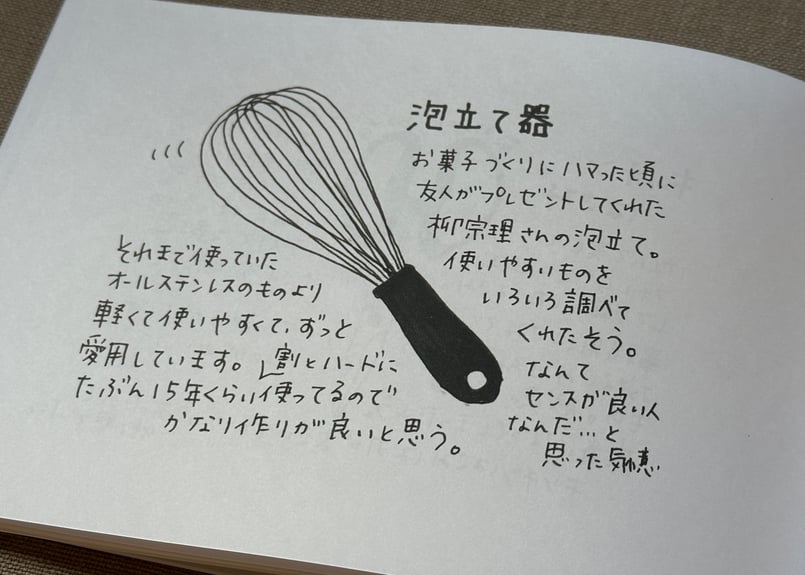 泡立て器
お菓子づくりにハマった頃に
友人がプレゼントしてくれた
柳宗理さんの泡立て。
使いやすいものを
いろいろ調べて
くれたそう。
なんて
センスが良い人
なんだ…と
思った記憶
それまで使っていた
オールステンレスのものより
軽くて使いやすくて、ずっと
愛用しています。割とハードに
たぶん15年くらい使ってるので
かなり作りが良いと思う。